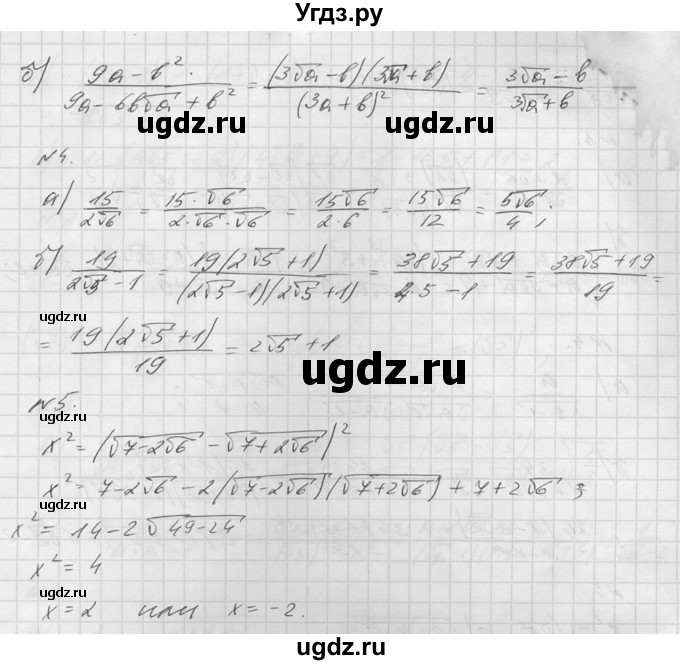 Угдз.ру
б) (9a - b²)/(9a - 6b√a + b²) = ((3√a - b)(3√a + b))/((3a + b)²) = (3√a - b)/(3√a + b)
ugdz.ru ugdz.ru
№4.
а) 15/(2√6) = (15·√6)/(2·√6·√6) = 15√6/(2·6) = 15√6/12 = 5√6/4;
б) 19/(2√5 - 1) = 19(2√5 + 1)/((2√5 - 1)(2√5 + 1)) = (38√5 + 19)/(4·5 - 1) = (38√5 + 19)/19 =
ugdz.ru
= 19(2√5 + 1)/19 = 2√5 + 1
ugdz.ru
№5.
x² = (√(7 - 2√6) - √(7 + 2√6))²
x² = 7 - 2√6 - 2(√(7 - 2√6))(√(7 + 2√6)) + 7 + 2√6 ;
x² = 14 - 2√(49 - 24)
x² = 4
ugdz.ru ugdz.ru
x = 2 или x = -2.
ugdz.ru